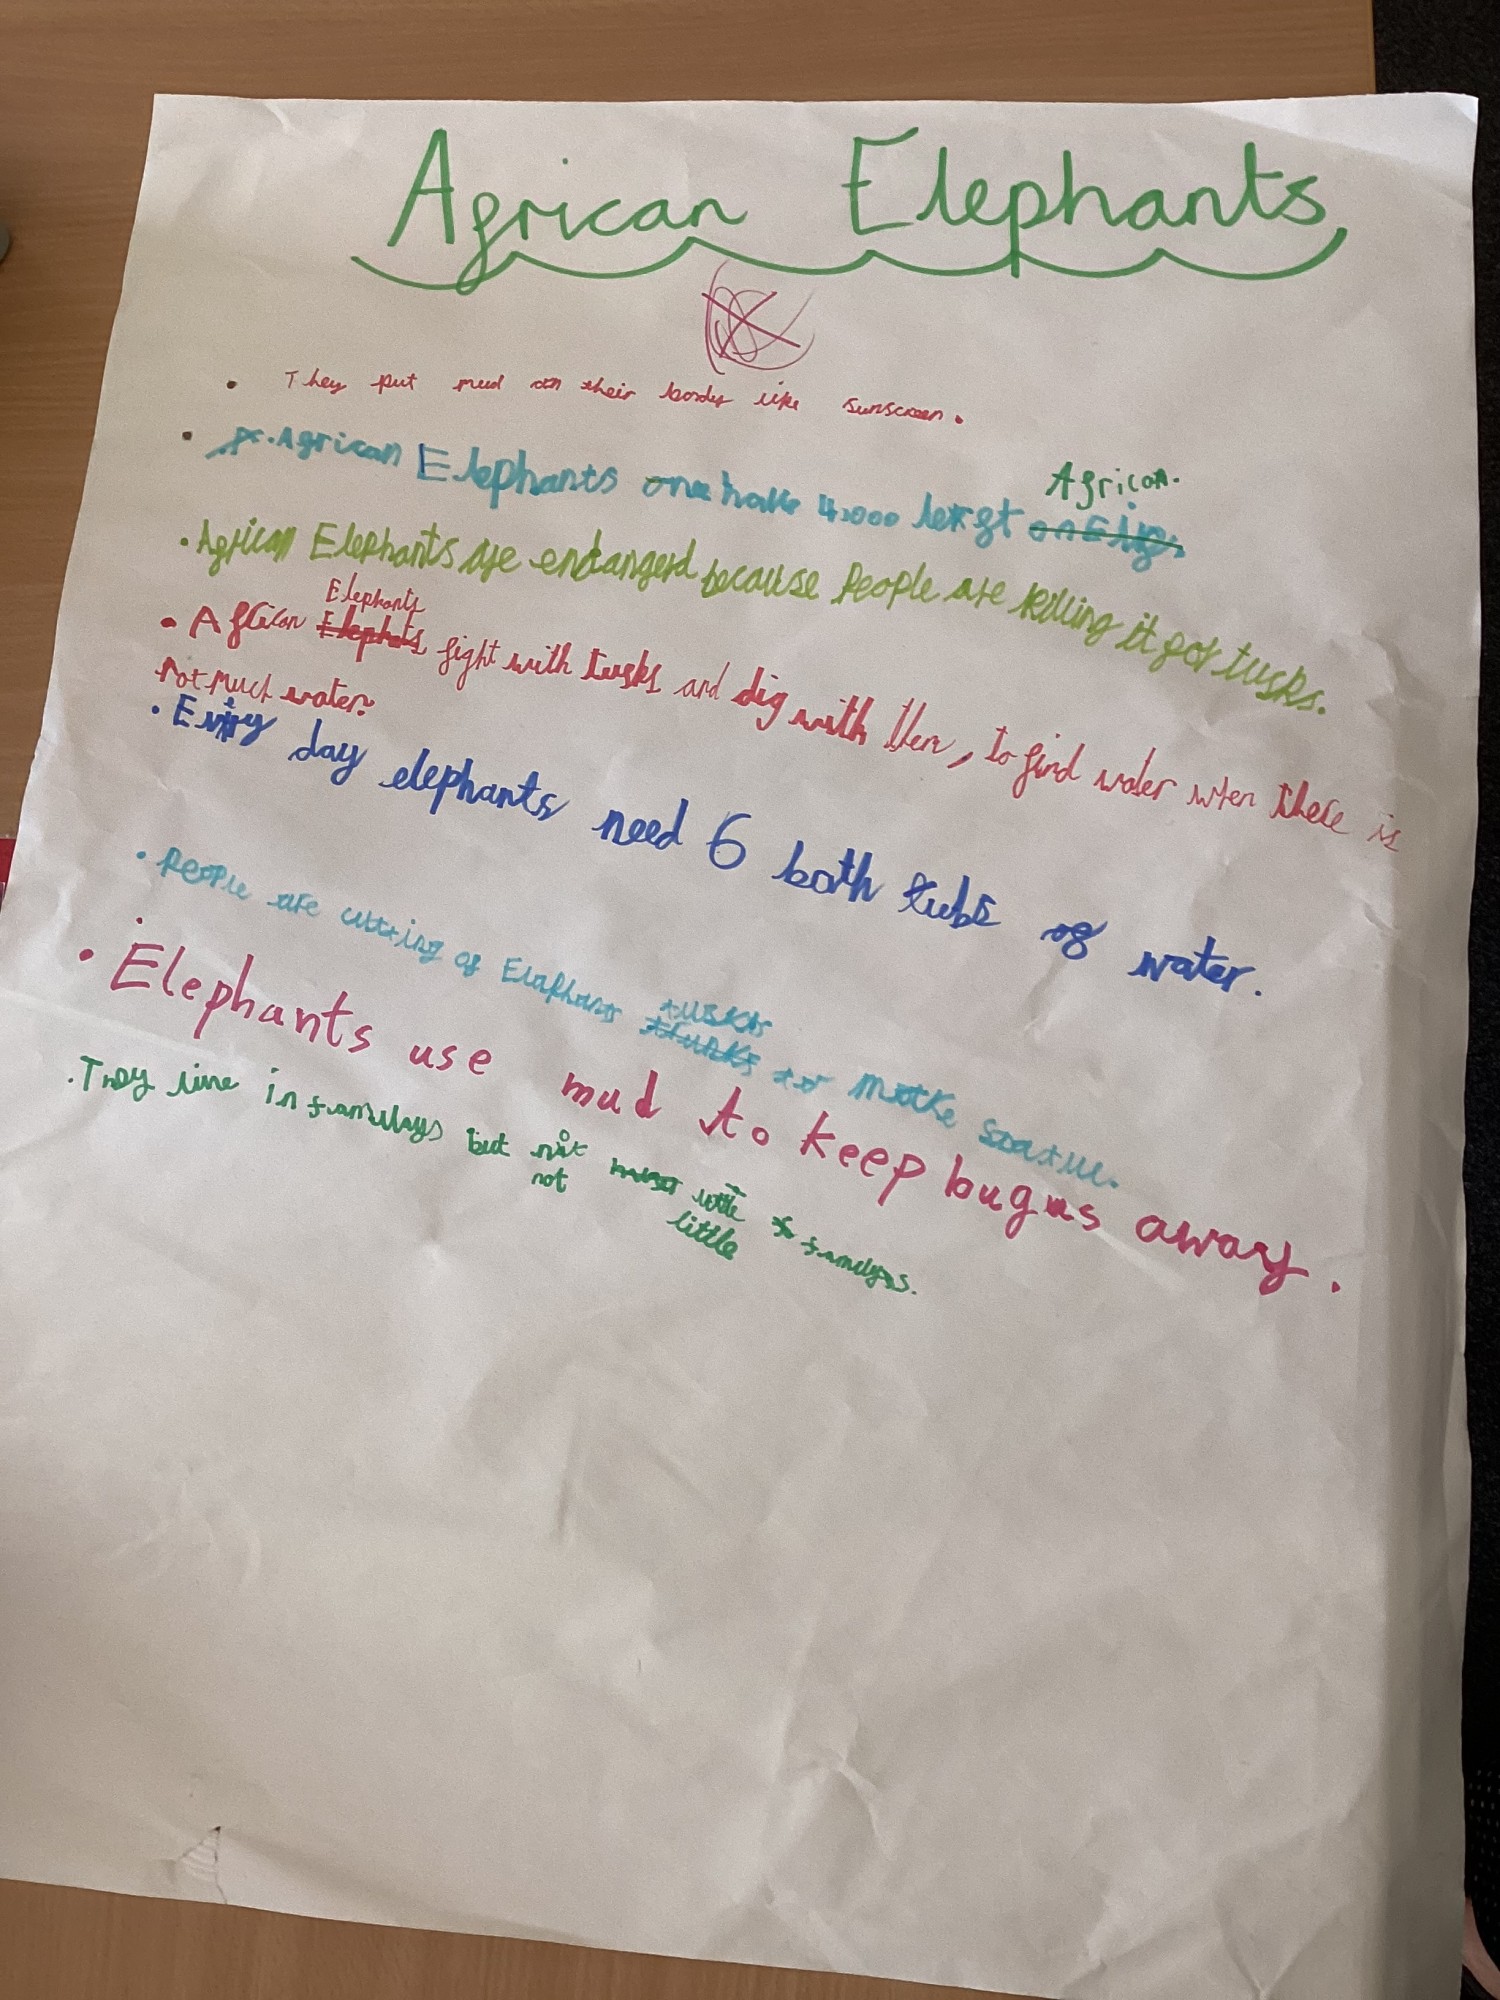 African Elephants
They put mud on their body like sunscreen.
African Elephants have 4,000 left African.
African Elephants are endangerd because People are killing it for tusks.
African Elephants fight with tusks and dig with them, to find water when there is
not much water.
Every day elephants need 6 bath tubs of water.
People are cutting of Elaphants tuskts to make statu.
Elephants use mud to keep bugs away.
They live in familays but not little familys.